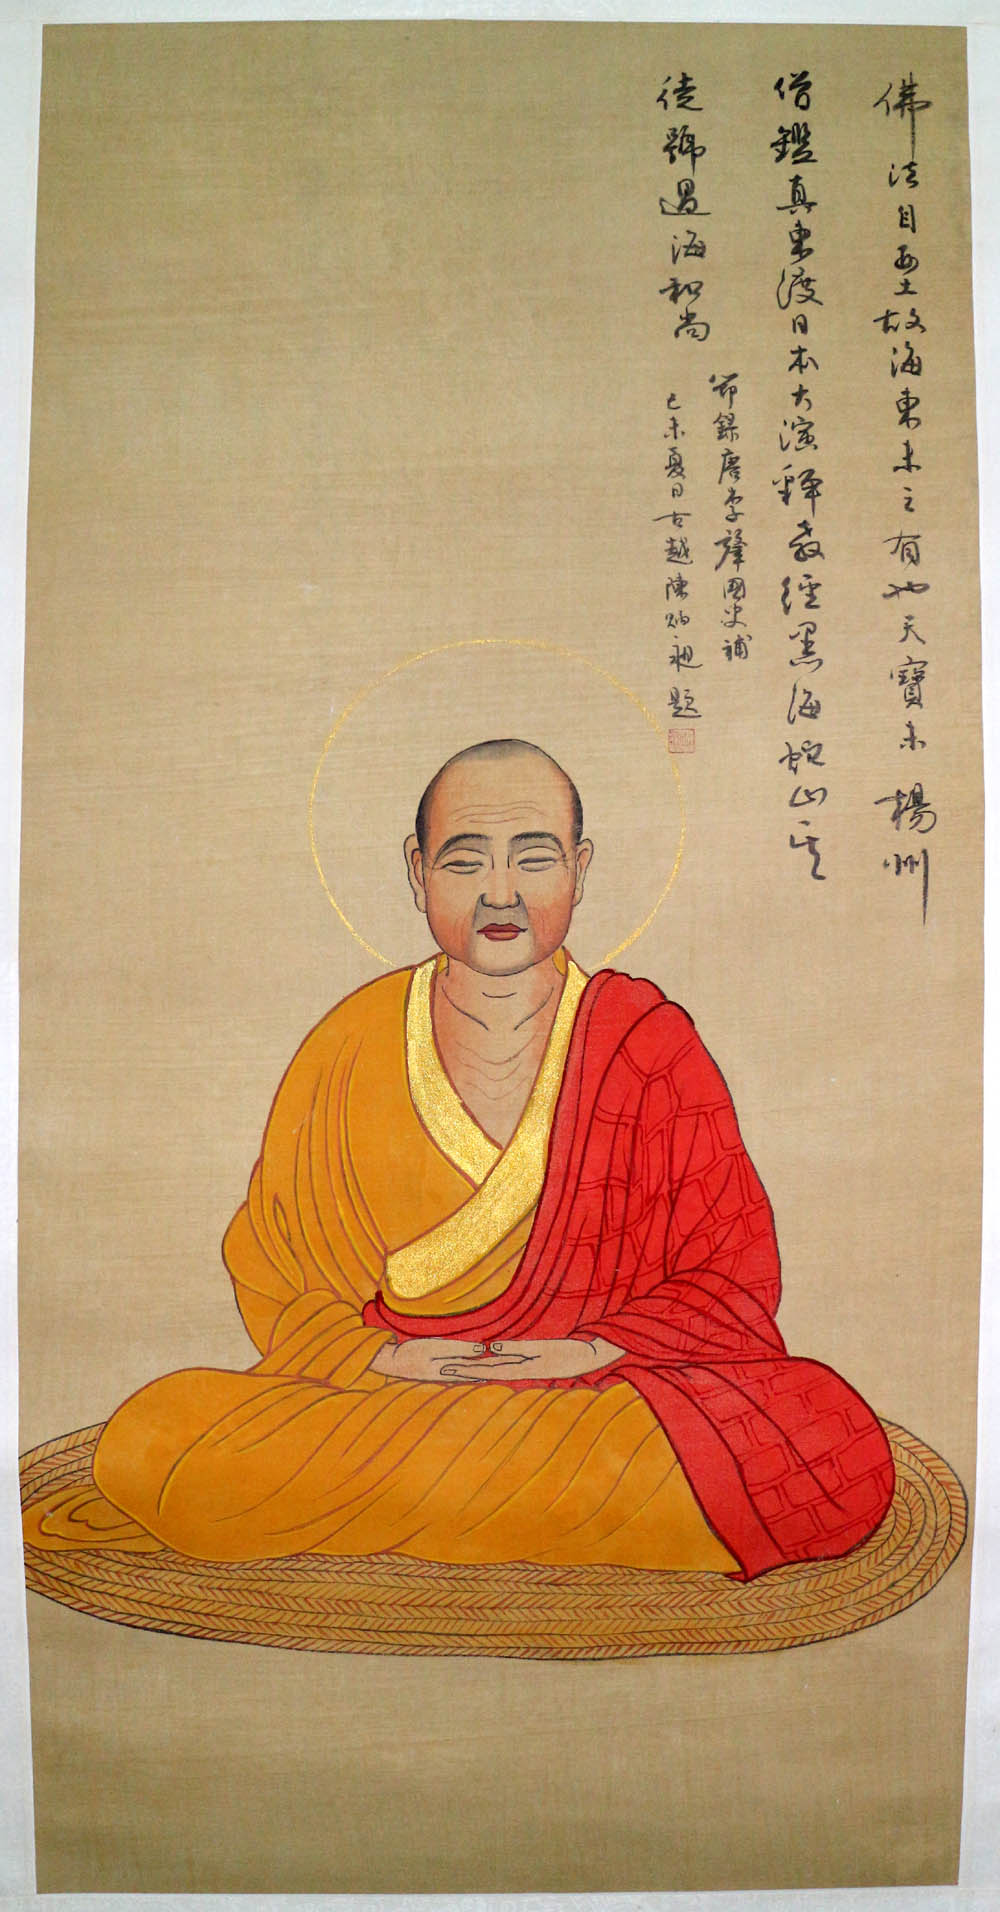 佛法自西土故海東未之有也天寶末楊州
僧鑑真東渡日本大演釋教經黑海蛇山其
徒號過海和尚
節錄唐李肇國史補
己未夏日古越陳
題